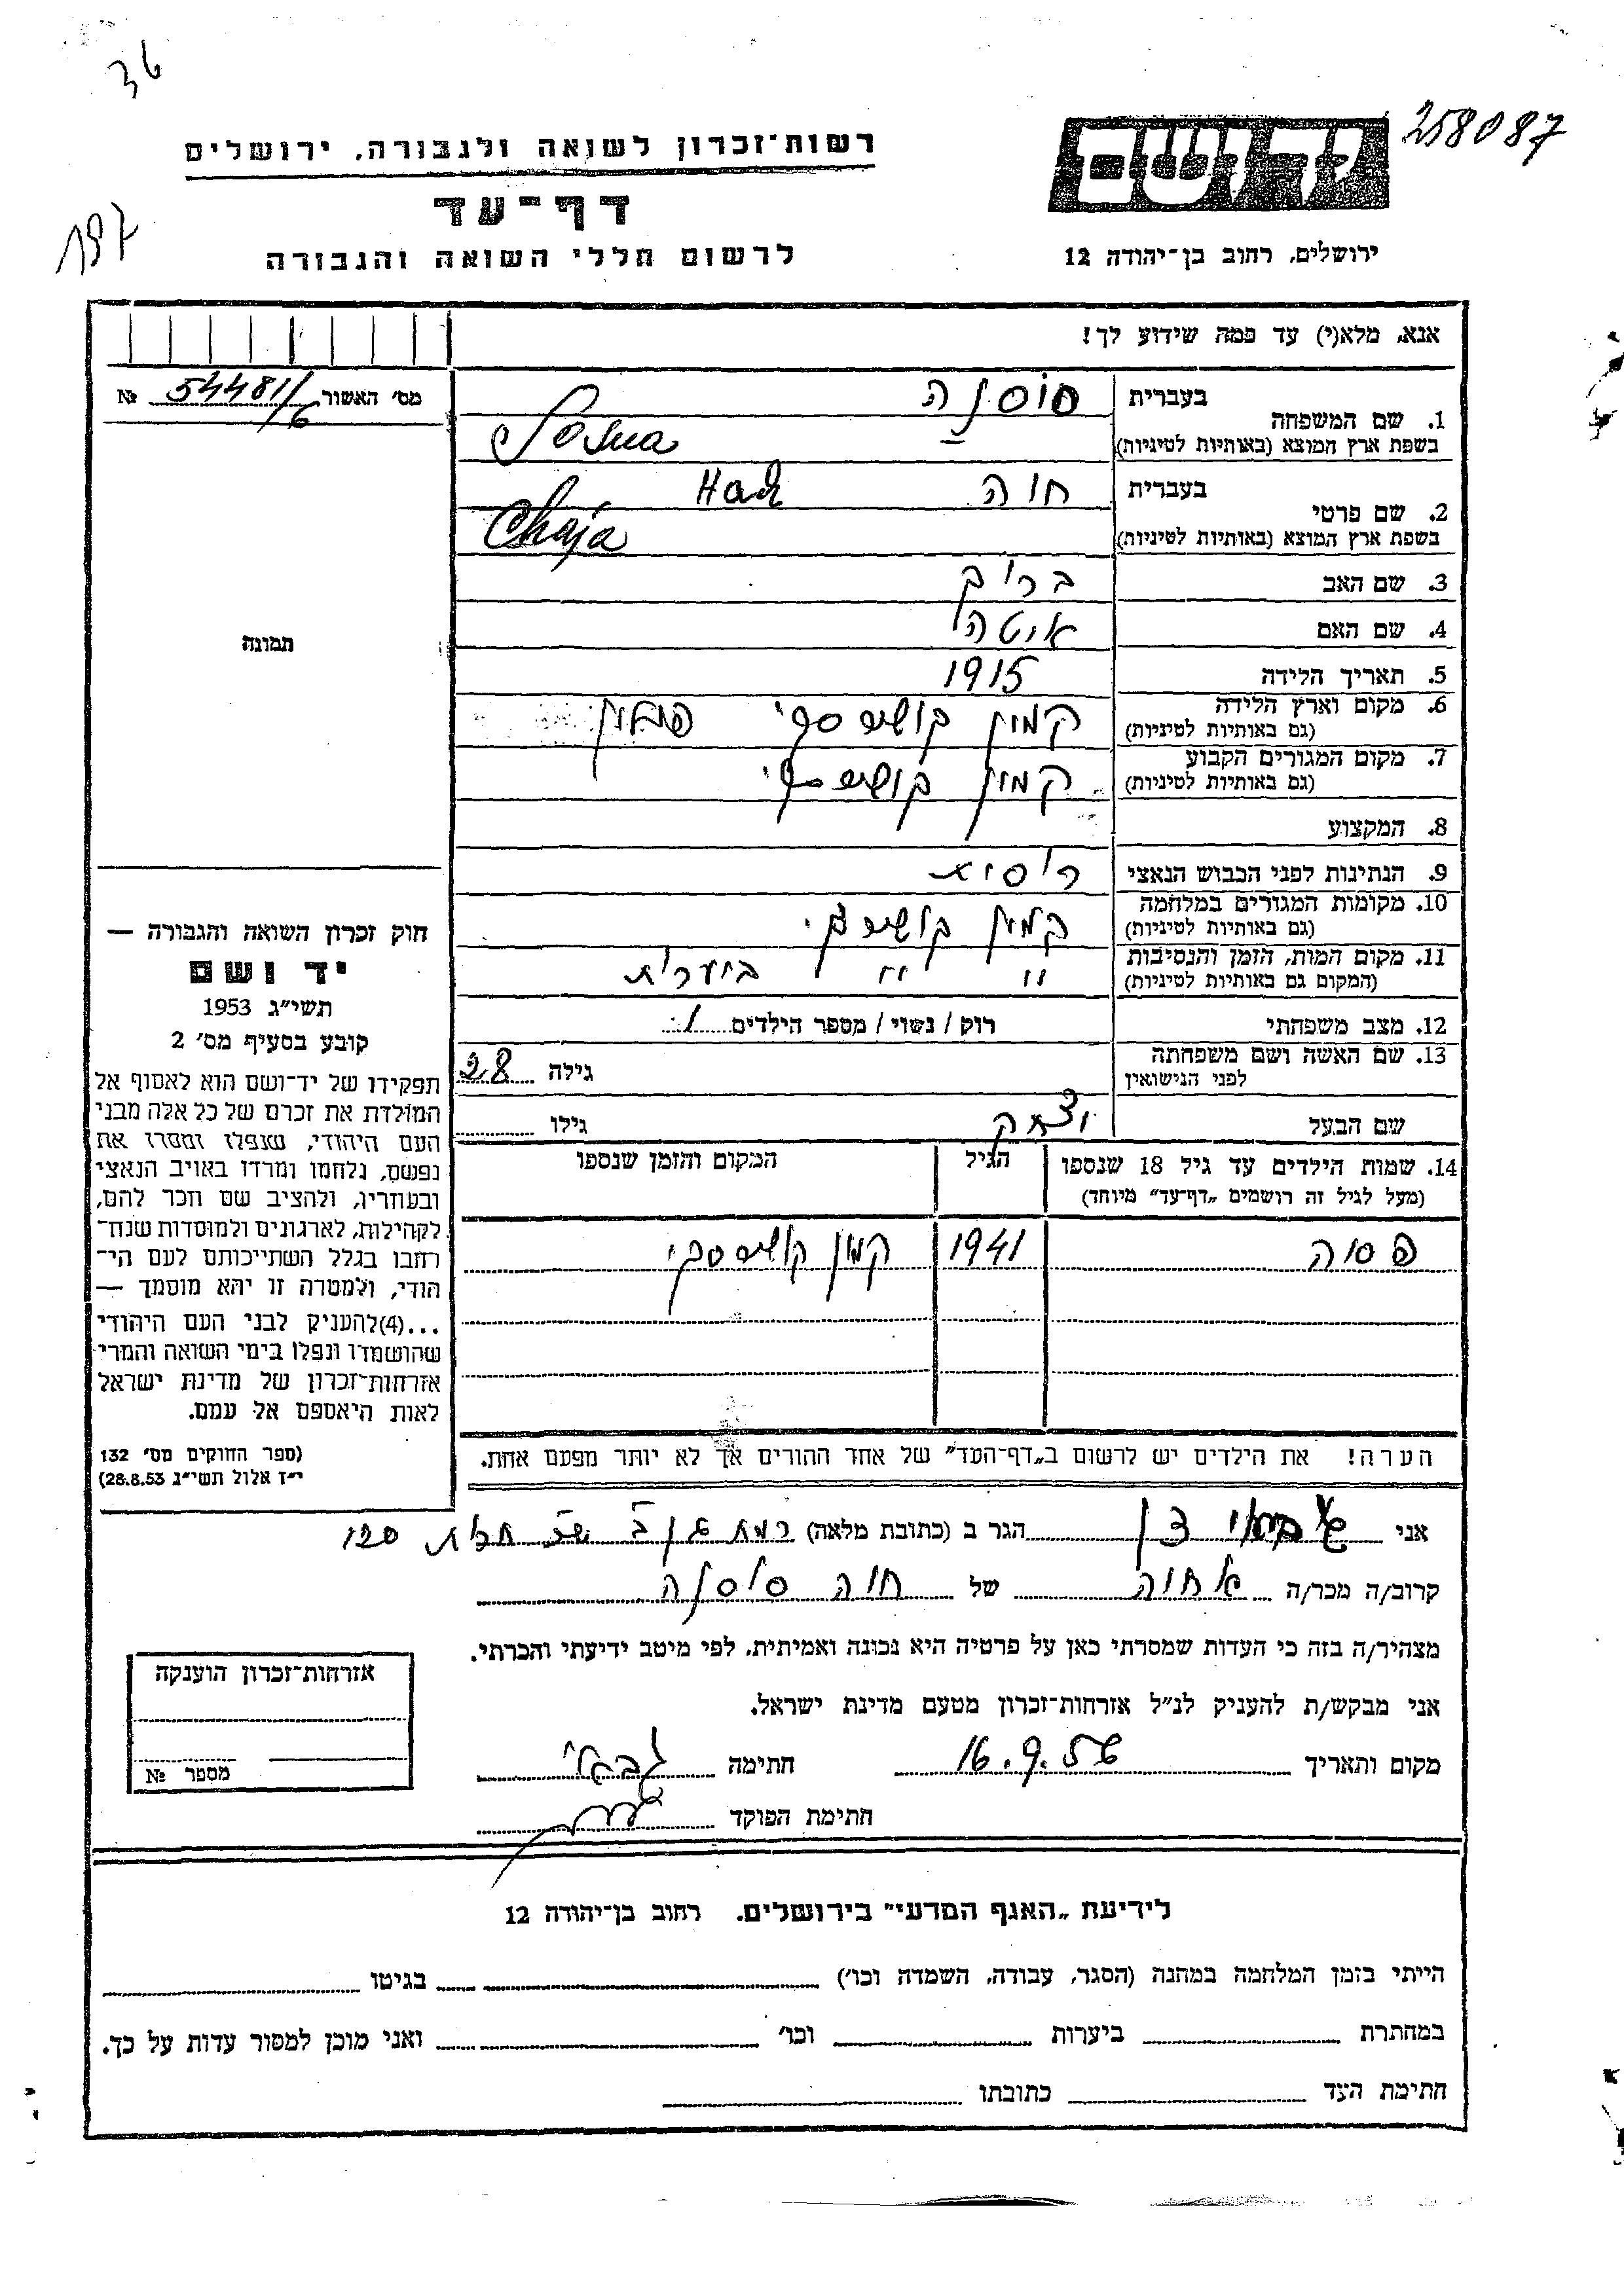 36
258087
יד ושם
רשות־זכרון לשואה ולגבורה, ירושלים
דף־עד
197
לרשום חללי השואה והגבורה
ירושלים, רחוב בן־יהודה 12
אנא, מלא(י) עד כמה שידוע לך!
מס׳ האשור 54481/6 №
1. שם המשפחה
בעברית סוסנה
בשפת ארץ המוצא (באותיות לטיניות) Sosna
2. שם פרטי
בעברית חוה
בשפת ארץ המוצא (באותיות לטיניות) Chaja
3. שם האב ברוך
4. שם האם איטה
5. תאריך הלידה 1915
6. מקום וארץ הלידה קמין קושירסקי פולין
(גם באותיות לטיניות)
7. מקום המגורים הקבוע קמין קושירסקי
(גם באותיות לטיניות)
8. המקצוע
9. הנתינות לפני הכבוש הנאצי
10. מקומות המגורים במלחמה קמין
(גם באותיות לטיניות)
11. מקום המות, הזמן והנסיבות " "
(המקום גם באותיות לטיניות)
12. מצב משפחתי רוק / נשוי / מספר הילדים 1
13. שם האשה ושם משפחתה גילה 28
לפני הנישואין
שם הבעל יצחק גילו
14. שמות הילדים עד גיל 18 שנספו הגיל המקום והזמן שנספו
(מעל לגיל זה רושמים „דף־עד” מיוחד)
פסיה 1941 קמין קושירסקי
הערה! את הילדים יש לרשום ב„דף־העד” של אחד ההורים אך לא יותר מפעם אחת.
תמונה
חוק זכרון השואה והגבורה —
יד ושם
תשי״ג 1953
קובע בסעיף מס׳ 2
תפקידו של יד־ושם הוא לאסוף אל
המולדת את זכרם של כל אלה מבני
העם היהודי, שנפלו ומסרו את
נפשם, נלחמו ומרדו באויב הנאצי
ובעוזריו, ולהציב שם וזכר להם,
לקהילות, לארגונים ולמוסדות שנח־
רבו בגלל השתייכותם לעם הי־
הודי, ולמטרה זו יהא מוסמך —
...(4)להעניק לבני העם היהודי
שהושמדו ונפלו בימי השואה והמרי
אזרחות־זכרון של מדינת ישראל
לאות היאספם אל עמם.
(ספר החוקים מס׳ 132
י״ז אלול תשי״ג 28.8.53)
אני הגר ב (כתובת מלאה) רמת גן 120
קרוב/ה מכר/ה אחיה של חוה סוסנה
מצהיר/ה בזה כי העדות שמסרתי כאן על פרטיה היא נכונה ואמיתית, לפי מיטב ידיעתי והכרתי.
אני מבקש/ת להעניק לנ״ל אזרחות־זכרון מטעם מדינת ישראל.
מקום ותאריך 16.9.56 חתימה
חתימת הפוקד
אזרחות־זכרון הוענקה
מספר №
לידיעת „האגף המדעי” בירושלים. רחוב בן־יהודה 12
הייתי בזמן המלחמה במחנה (הסגר, עבודה, השמדה וכו׳) בגיטו
במחתרת ביערות וכו׳ ואני מוכן למסור עדות על כך.
חתימת העד כתובתו